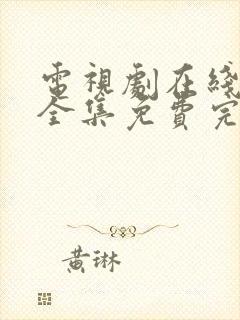 電視劇在綫
全集免費完
黄琳